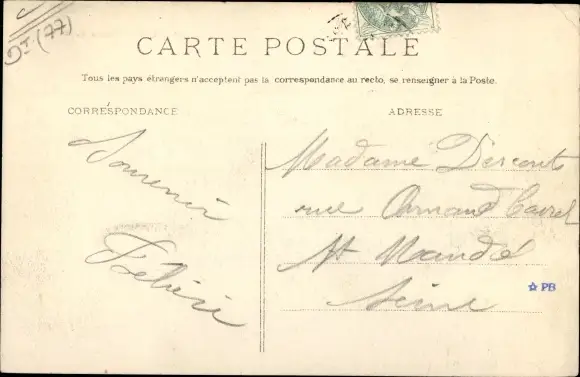 Dt (77)
CARTE POSTALE
Tous les pays étrangers n'acceptent pas la correspondance au recto, se renseigner à la Poste.
CORRESPONDANCE
ADRESSE
Souvenir
Madame Descouts
rue Armand Carrel
St Mandé
Seine
☆ PB